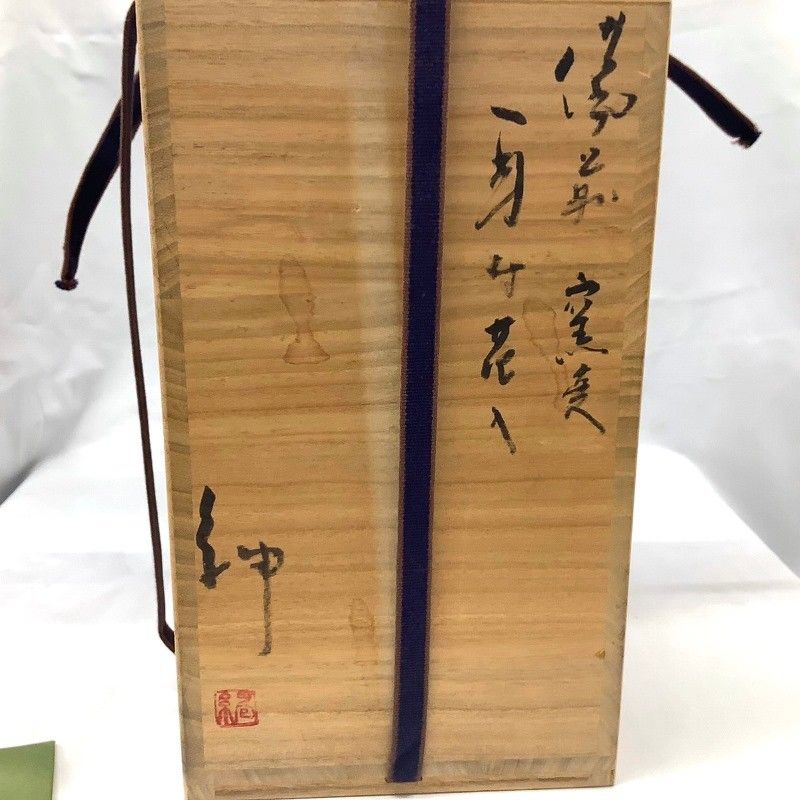 備前 窯変
一身竹花入
紳